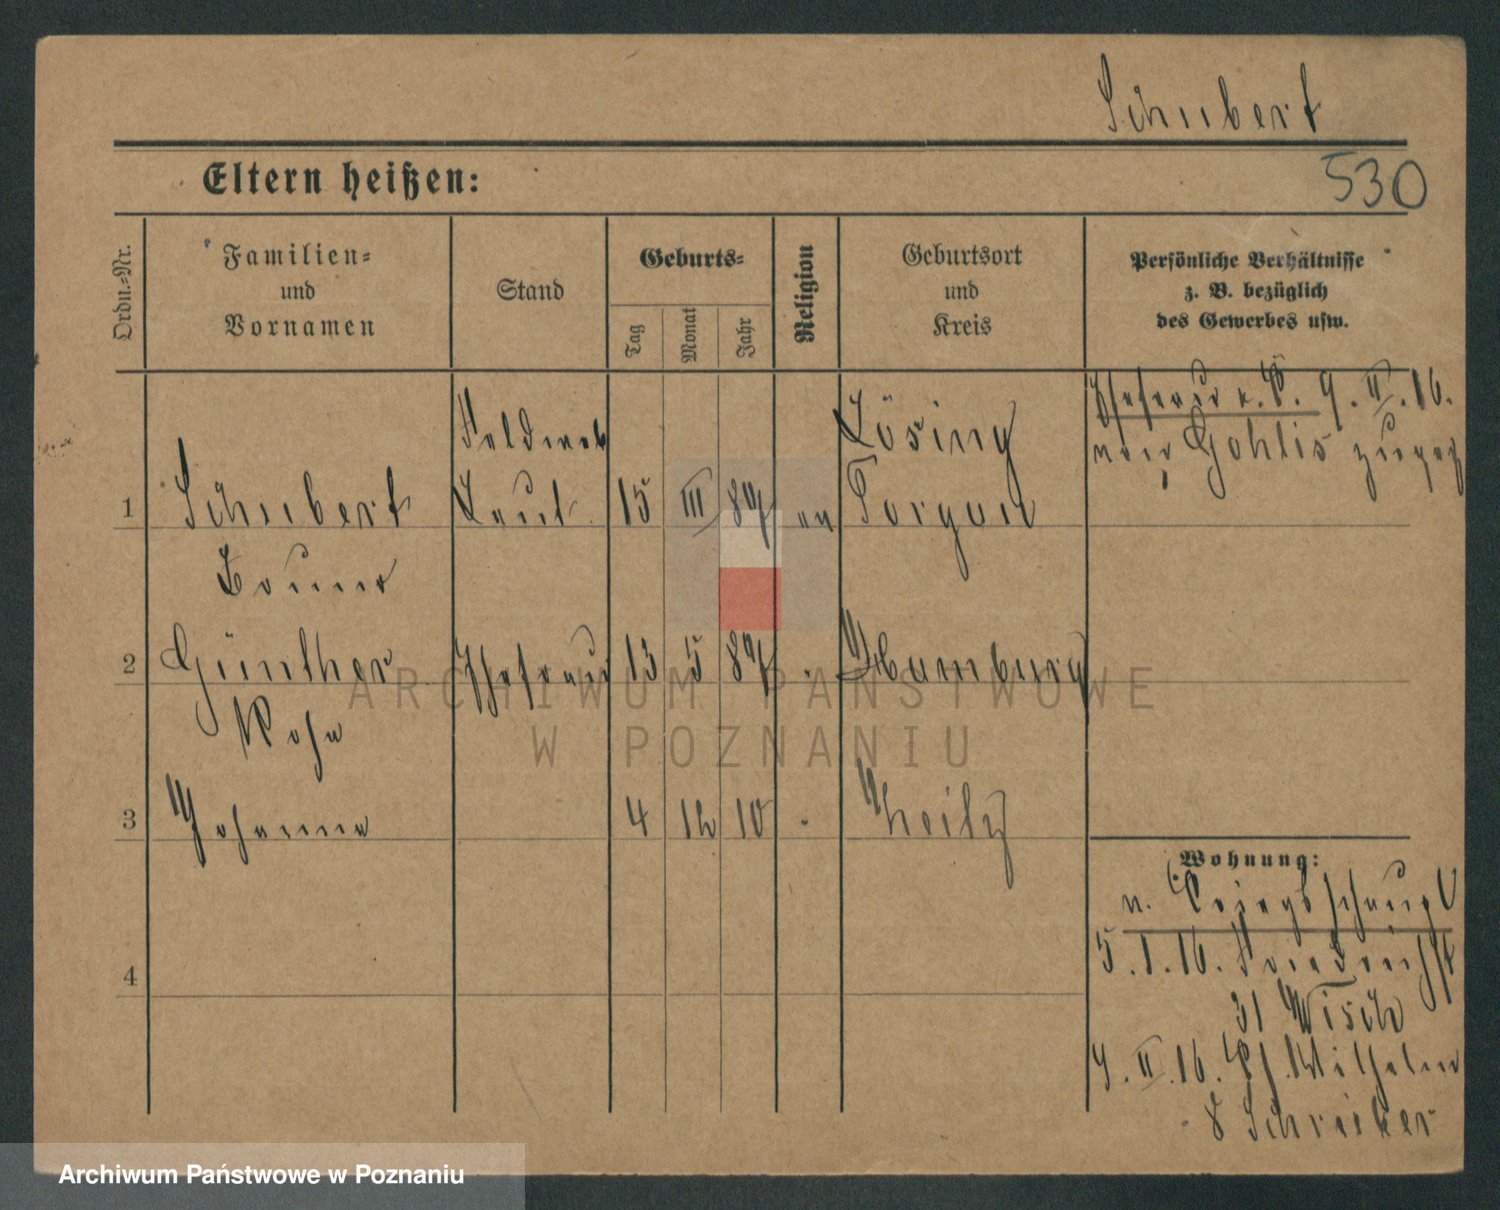 Schubert
530
Eltern heißen:
Ordn.-Nr.
Familien-
und
Vornamen
Stand
Geburts-
Tag
Monat
Jahr
Religion
Geburtsort
und
Kreis
Persönliche Verhältnisse
z. B. bezüglich
des Gewerbes usw.
Ehefrau u. K. 9. II. 16.
von Gohlis zugez
Feldweb Lösing
1 Schubert Leut 15 III 87 ev Torgau
Bruno
2 Günther Ehefrau 13 5 87 Hamburg
Rosa
3 Johanna 4 12 10
4
Wohnung:
5. 1. 16.
31
9. II. 16. Wilhelm
8 Schreiber
ARCHIWUM PAŃSTWOWE
W POZNANIU
Archiwum Państwowe w Poznaniu